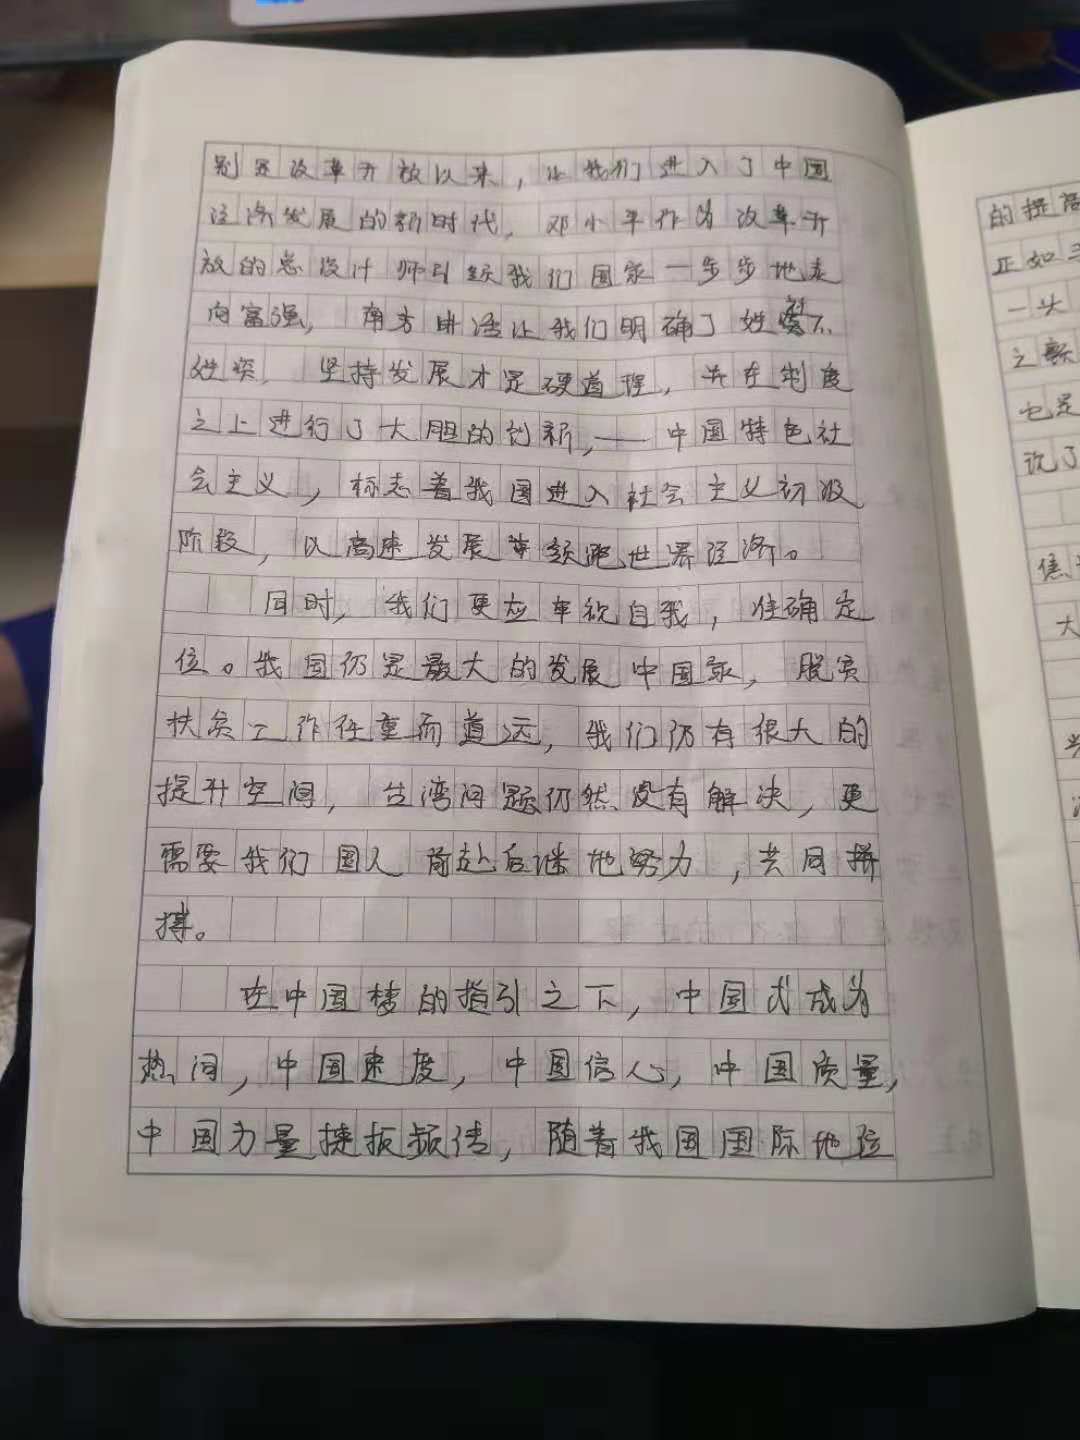 别是改革开放以来，让我们进入了中国
经济发展的新时代，邓小平作为改革开
放的总设计师引领我们国家一步步地走
向富强，南方讲话让我们明确了姓社不
姓资，坚持发展才是硬道理，并在制度
之上进行了大胆的创新，——中国特色社
会主义，标志着我国进入社会主义初级
阶段，以高速发展领跑世界经济。
同时，我们更应审视自我，准确定
位。我国仍是最大的发展中国家，脱贫
扶贫工作任重而道远，我们仍有很大的
提升空间，台湾问题仍然没有解决，更
需要我们国人前赴后继地努力，共同拼
搏。
在中国梦的指引之下，中国式成为
热词，中国速度，中国信心，中国质量，
中国力量捷报频传，随着我国国际地位
的提高
正如
一头
之
也是
说了
焦
大